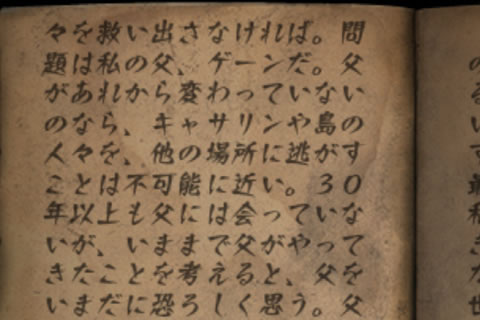 々を救い出さなければ。問
題は私の父、ゲーンだ。父
があれから変わっていない
のなら、キャサリンや島の
人々を、他の場所に逃がす
ことは不可能に近い。３０
年以上も父には会っていな
いが、いままで父がやって
きたことを考えると、父を
いまだに恐ろしく思う。父